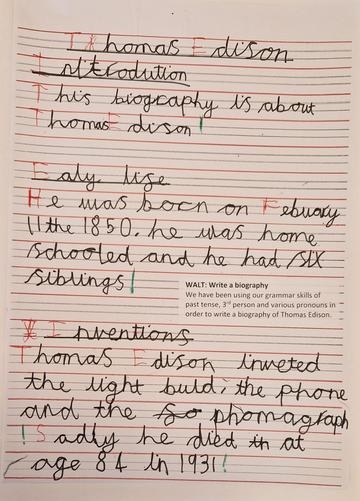 Thomas Edison
Introdution
This biography is about
Thomas Edison!
Ealy life
He was born on Febuory
11the 1850. he was home
schooled and he had six
siblings!
WALT: Write a biography
We have been using our grammar skills of
past tense, 3rd person and various pronouns in
order to write a biography of Thomas Edison.
Inventions
Thomas Edison inveted
the light buld, the phone
and the phomagraph
! Sadly he died at
age 84 in 1931!